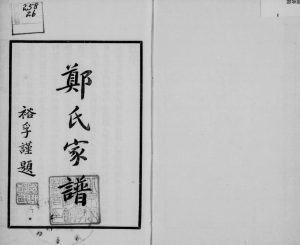 258
26
鄭氏家譜
裕孚謹題